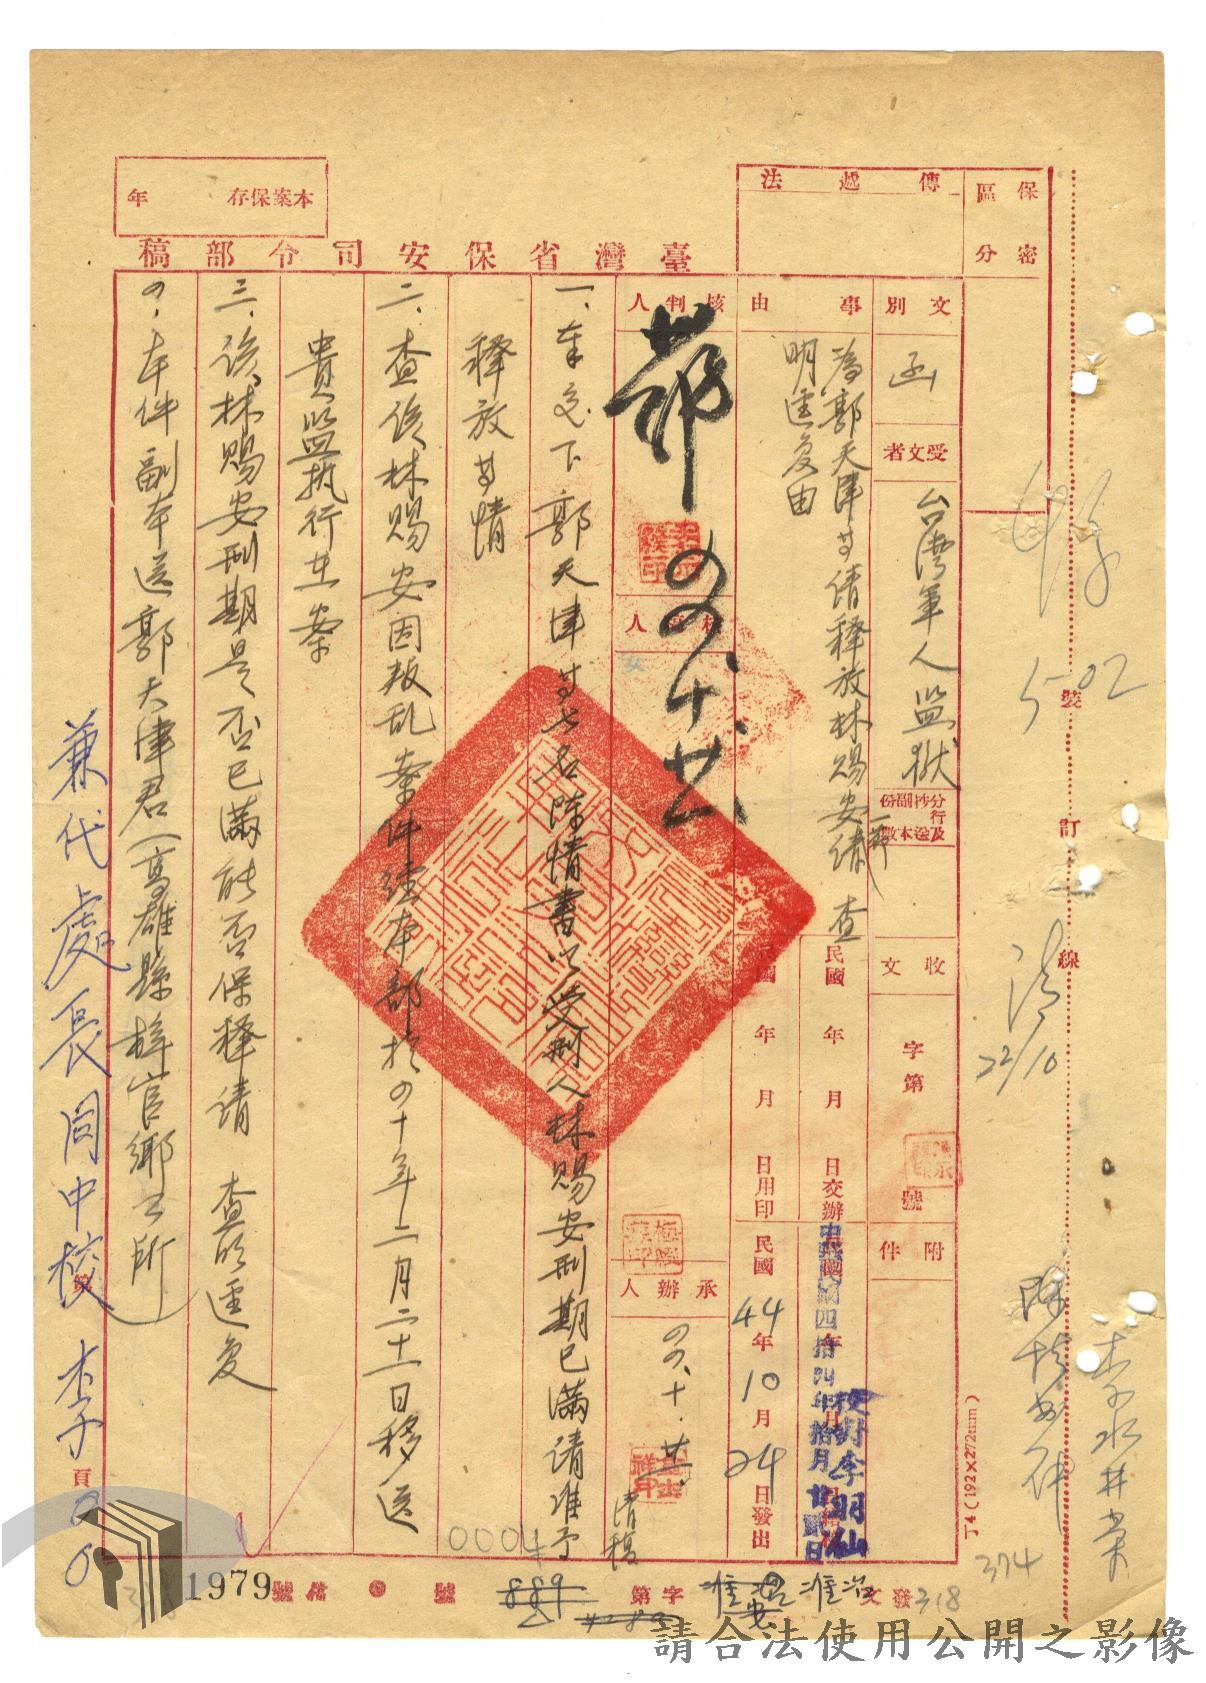 保密
區分
傳遞法
本案保存　年
臺灣省保安司令部稿
文別
函
受文者
台灣軍人監獄
分行及抄送副本份數
收文
字第
號
附件
事由
為郭天津等請釋放林賜安一節請查
明逕复由
民國　年　月　日交辦
中華民國四拾四年拾月廿貳日
校對李羽仙
國　年　月　日用印
民國44年10月24日發出
核判人
四四、十、廿
承辦人
四四、十、廿
清稿
一、奉交下郭天津等七名陳情書以受刑人林賜安刑期已滿請准予
釋放等情
二、查該林賜安因叛乱案件經本部於四十年二月二十一日移送
貴监执行在案
三、該林賜安刑期是否已滿能否保釋請　查明逕复
四、本件副本送郭天津君（高雄縣梓官鄉公所）
兼代處長周中校
李
頁
裝
訂
線
5-02
22/10
李水井案
374
丁4(192×272mm)
發文
318
字第
889
號
1979號
0004
請合法使用公開之影像